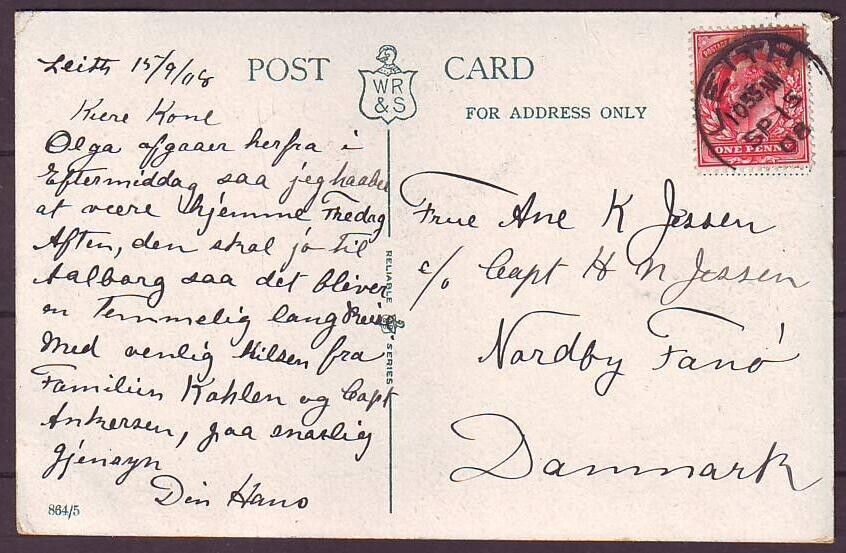 Leith 15/9/08
POST CARD
WR
& S
FOR ADDRESS ONLY
Kære Kone
Olga afgaaer herfra i
Eftermiddag saa jeg haaber
at være hjemme Fredag
Aften, den skal jo til
Aalborg saa det bliver
en temmelig lang Reise
Med venlig Hilsen fra
Familien Kahlen og Capt
Ankersen, paa snarlig
gjensyn
Din Hans
864/5
RELIABLE SERIES
LEITH
10 35 AM
SP 15
08
POSTAGE
ONE PENNY
Frue Ane K Jessen
c/o Capt H N Jessen
Nordby Fanó
Danmark